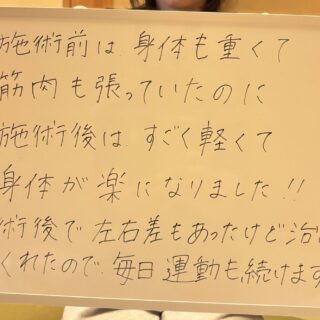 施術前は 身体も重くて
筋肉も張っていたのに
施術後は すごく軽くて
身体が楽になりました!!
術後で左右差もあったけど治
くれたので 毎日運動も続けます